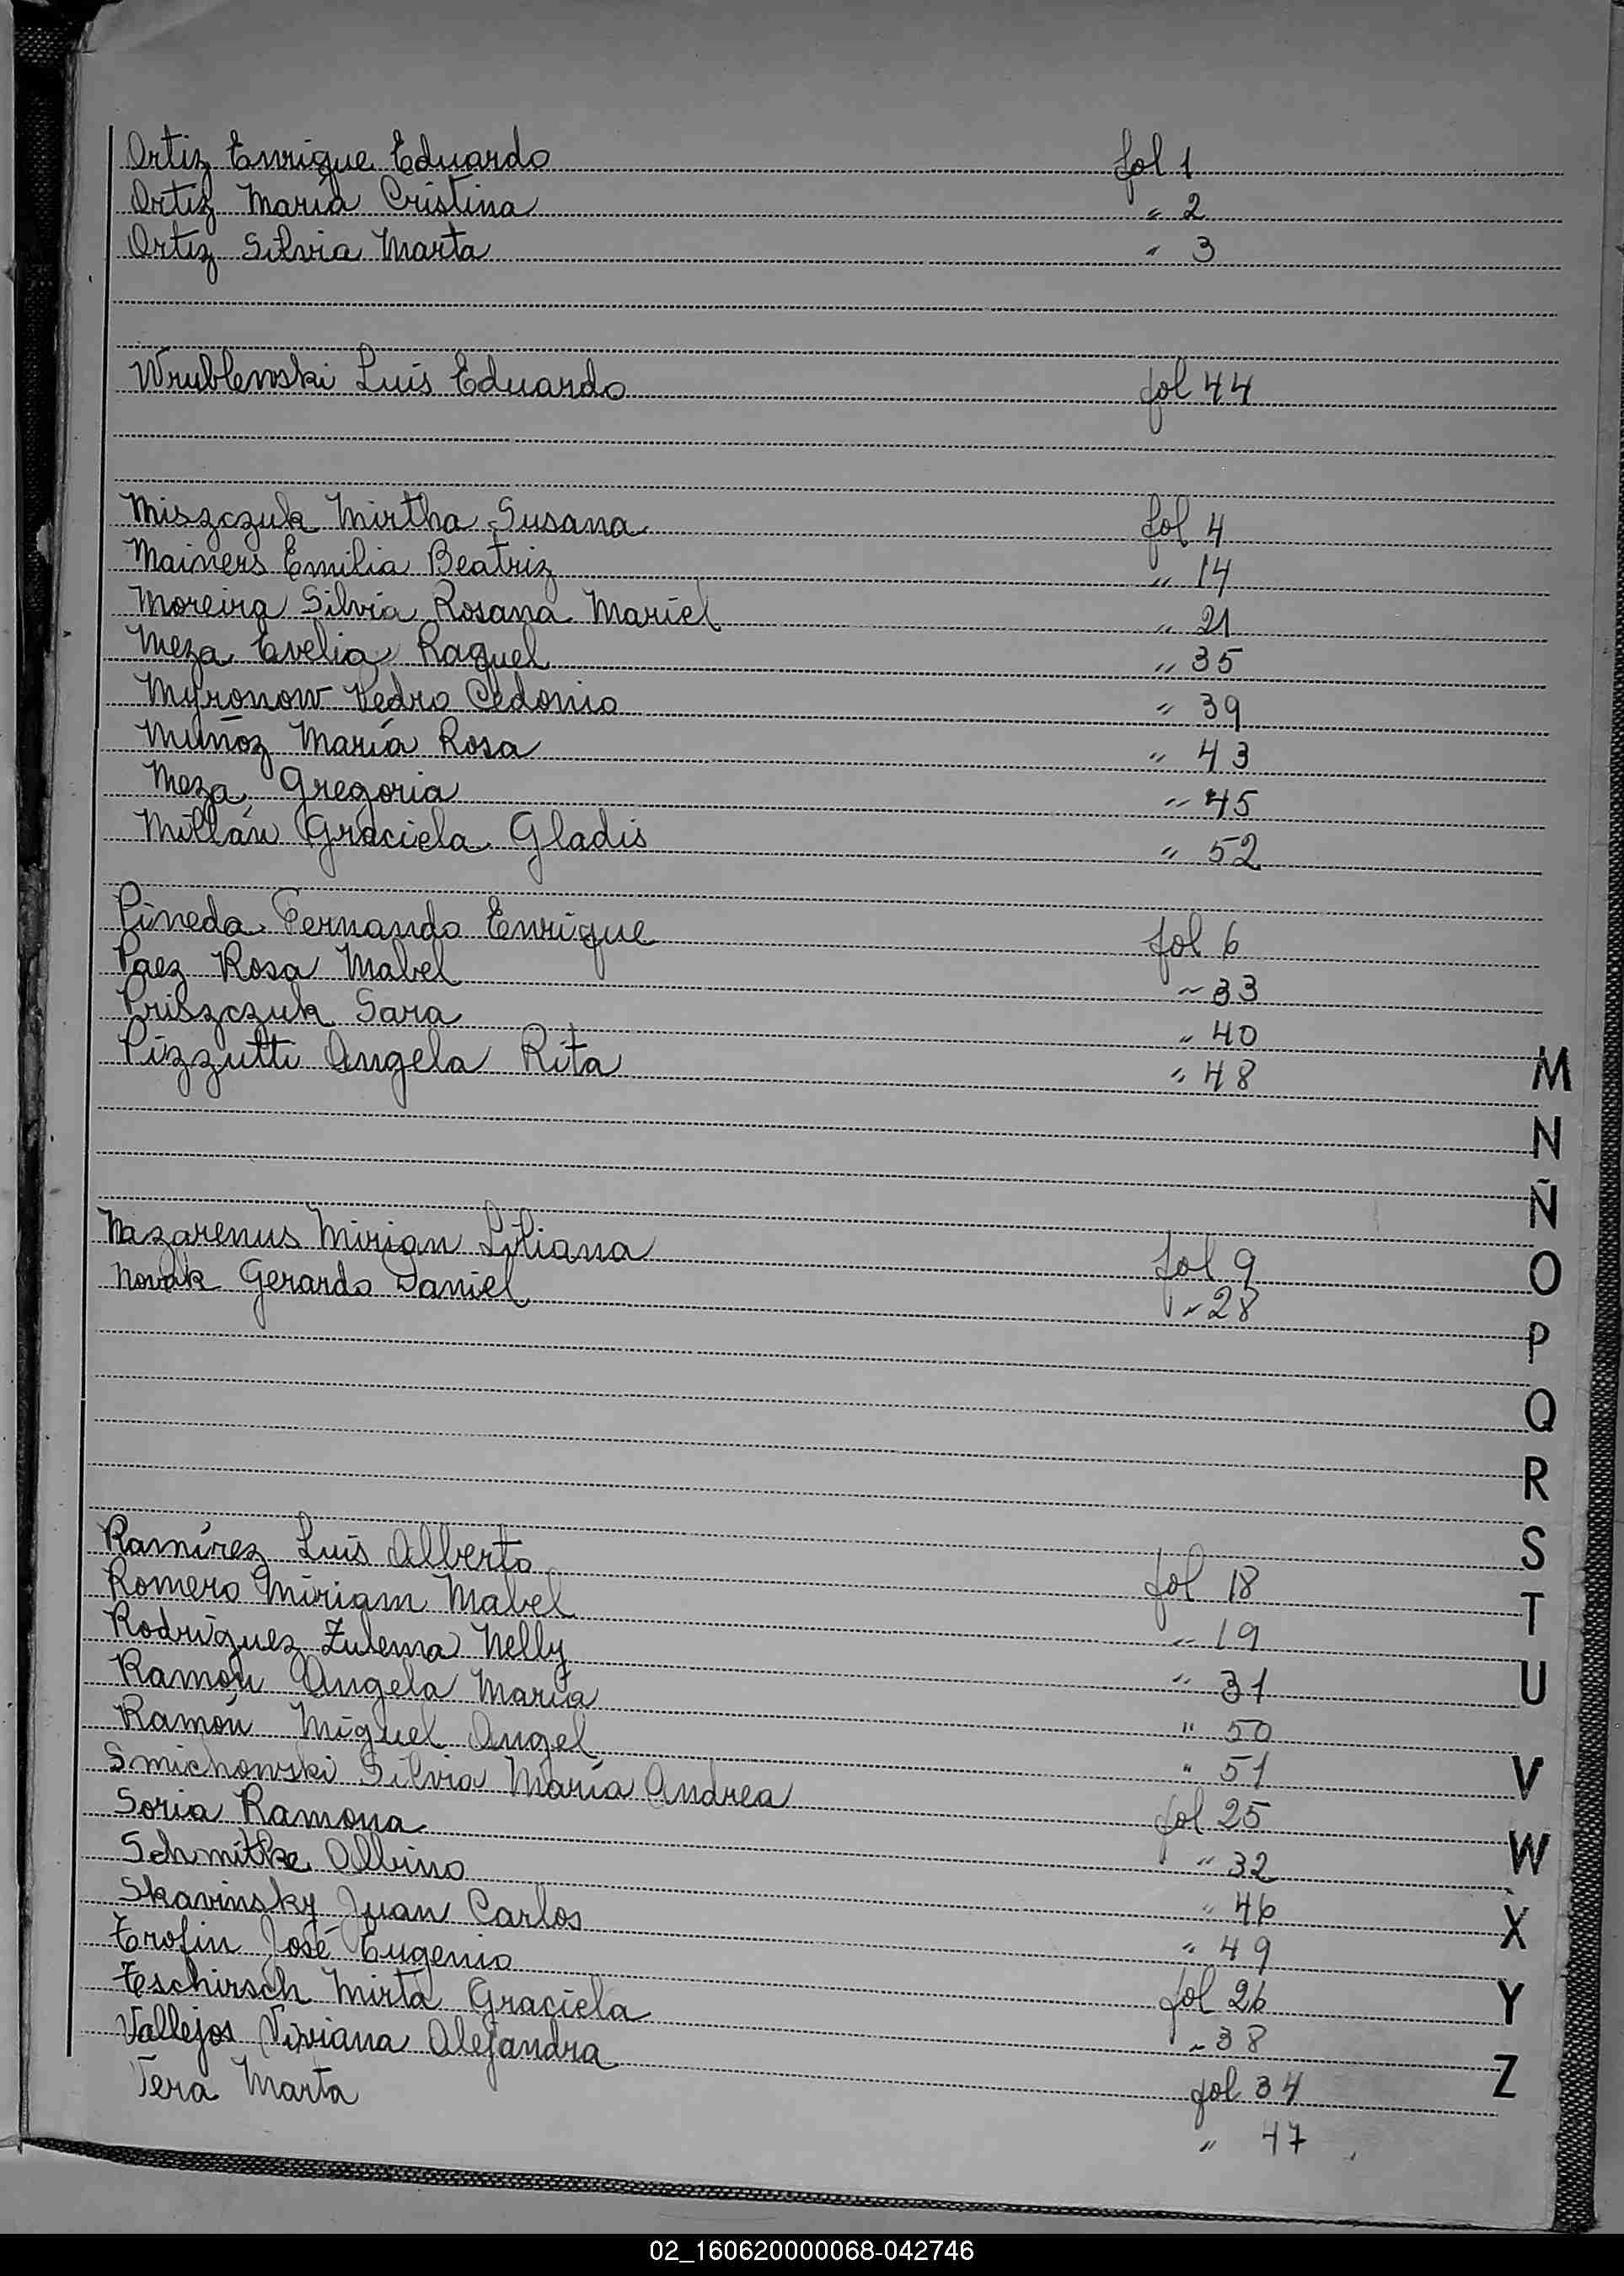 Ortiz Enrique Eduardo fol 1
Ortiz María Cristina " 2
Ortiz Silvia Marta " 3
Wrublewski Luis Eduardo fol 44
Miszczuk Mirtha Susana fol 4
Mainers Emilia Beatriz " 14
Moreira Silvia Rosana Mariel " 21
Meza Evelia Raquel " 35
Myronow Pedro Cedonio " 39
Muñoz María Rosa " 43
Meza Gregoria " 45
Millán Graciela Gladis " 52
Pineda Fernando Enrique fol 6
Paez Rosa Mabel " 33
Priszczuk Sara " 40
Pizzutti Angela Rita " 48
M
N
Ñ
Nazarenus Mirian Liliana fol 9
O
Novak Gerardo Daniel " 28
P
Q
R
S
Ramírez Luis Alberto fol 18
T
Romero Miriam Mabel " 19
Rodríguez Zulema Nelly " 31
U
Ramón Angela María " 50
Ramón Miguel Angel " 51
V
Smichowski Silvia María Andrea fol 25
W
Soria Ramona " 32
Schmitke Albino " 46
X
Skavinsky Juan Carlos " 49
Trofin José Eugenio fol 26
Y
Teschirsch Mirta Graciela " 38
Z
Vallejos Viviana Alejandra fol 34
Tera Marta " 47
02_160620000068-042746